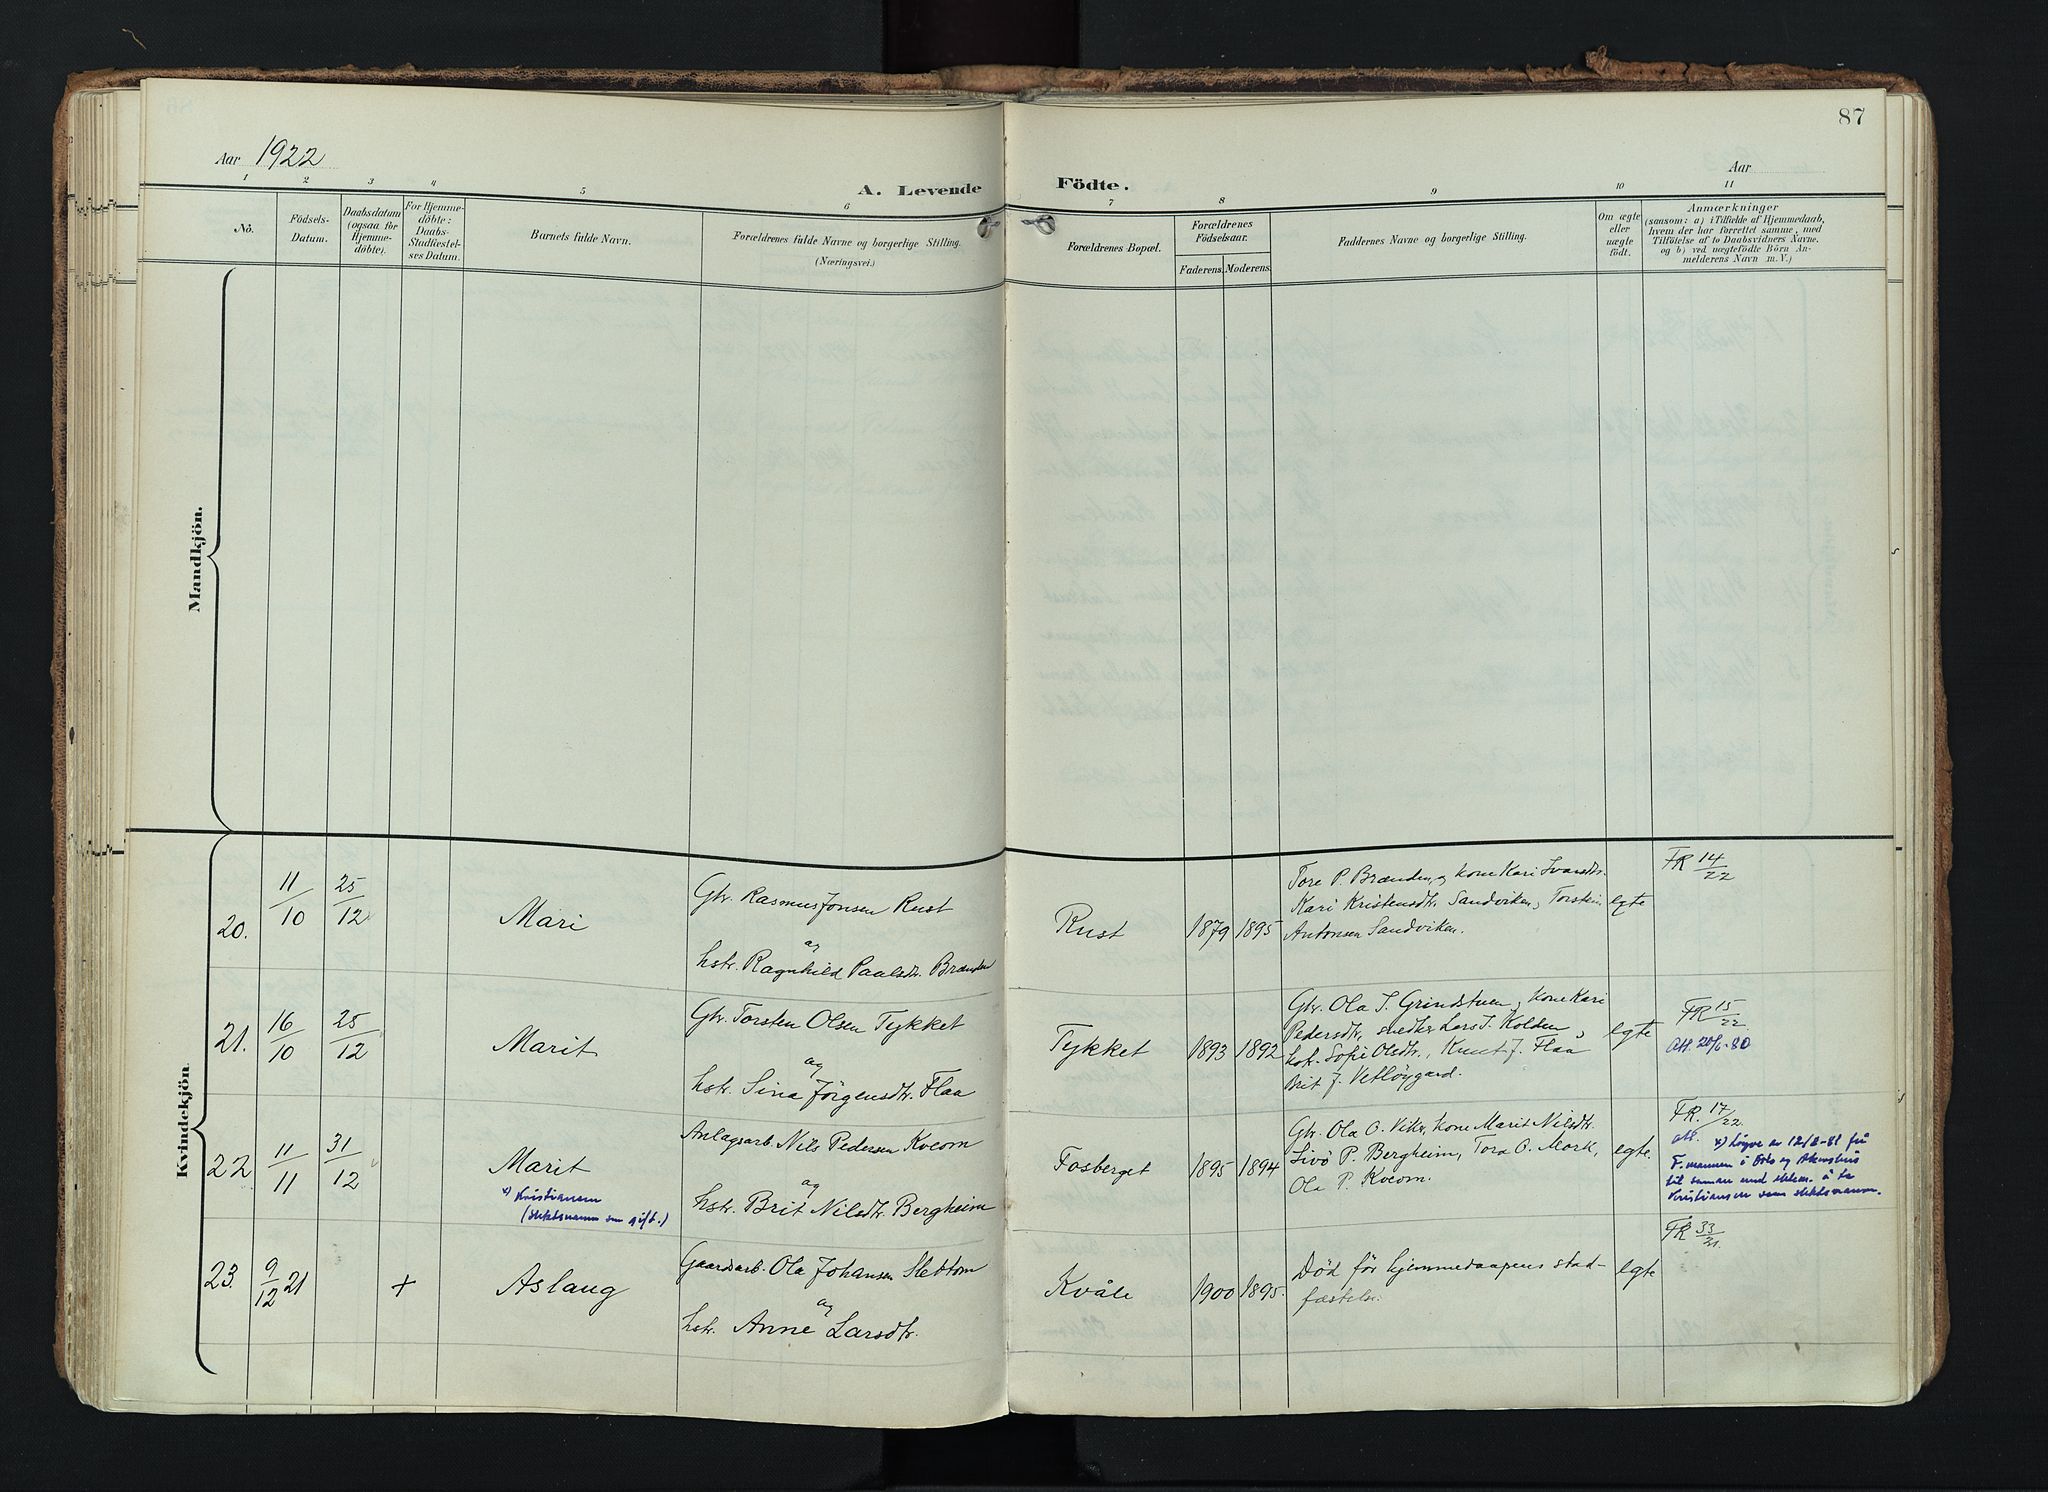 87
Aar 1922
Aar
A. Levende Födte.
1 2 3 4 5 6 7 8 9 10 11
No.
Födsels-
Datum.
Daabsdatum
(ogsaa for
Hjemme-
döbte).
For Hjemme-
döbte:
Daabs-
Stadfæstel-
ses Datum.
Barnets fulde Navn.
Forældrenes fulde Navne og borgerlige Stilling.
(Næringsvei.)
Forældrenes Bopæl.
Forældrenes
Födselsaar.
Faderens. Moderens.
Faddernes Navne og borgerlige Stilling.
Om ægte
eller
uægte
födt.
Anmærkninger
(saasom: a) i Tilfælde af Hjemmedaab,
hvem der har forrettet samme, med
Tilföielse af to Daabsvidners Navne.
og b) ved uægtefödte Börn An-
melderens Navn m. V.)
Mandkjön.
Kvindekjön.
20. 11/10 25/12 Mari
Gbr. Rasmus Jonsen Rust
og
hstr. Ragnhild Paalsdtr. Brænden
Rust 1879 1895
Tore P. Brænden, og kone Kari Ivarsdtr.
Kari Kristensdtr. Sandviken, Torstein
Antonsen Sandviken.
egte
FR 14/22
21. 16/10 25/12 Marit
Gbr. Torsten Olsen Tykket
og
hstr. Sina Jörgensdtr. Flaa
Tykket 1893 1892
Gbr. Ola T. Grindstuen, kone Kari
Pedersdtr, snedker Lars J. Kolden,
hst. Sofie Olsdtr., Knut J. Flaa
Brit J. Vetløygard.
egte
FR 15/22
Att. 20/6-80
22. 11/11 31/12 Marit
x) Kristiansen
(slektsnamn som gift.)
Anlægsarb. Nils Pedersen Kveom
og
hstr. Brit Nilsdtr. Bergheim
Fosberget 1895 1894
Gbr. Ola O. Vike, kone Marit Nilsdtr.
Livö P. Bergheim, Tora O. Mork,
Ola P. Kveom.
egte.
FR. 17/22
att. x) løyve av 12/2-81 frå
F.mannen i Oslo og Akershus
til saman med ektem. å ta
Kristiansen som slektsnamn.
23. 9/12 21 + Aslaug
Gaardsarb. Ola Johansen Slettom
og
hstr. Anne Larsdtr.
Kvåle 1900 1895.
Död för hjemmedaapens stad-
fæstelse.
egte
FR 33/21.